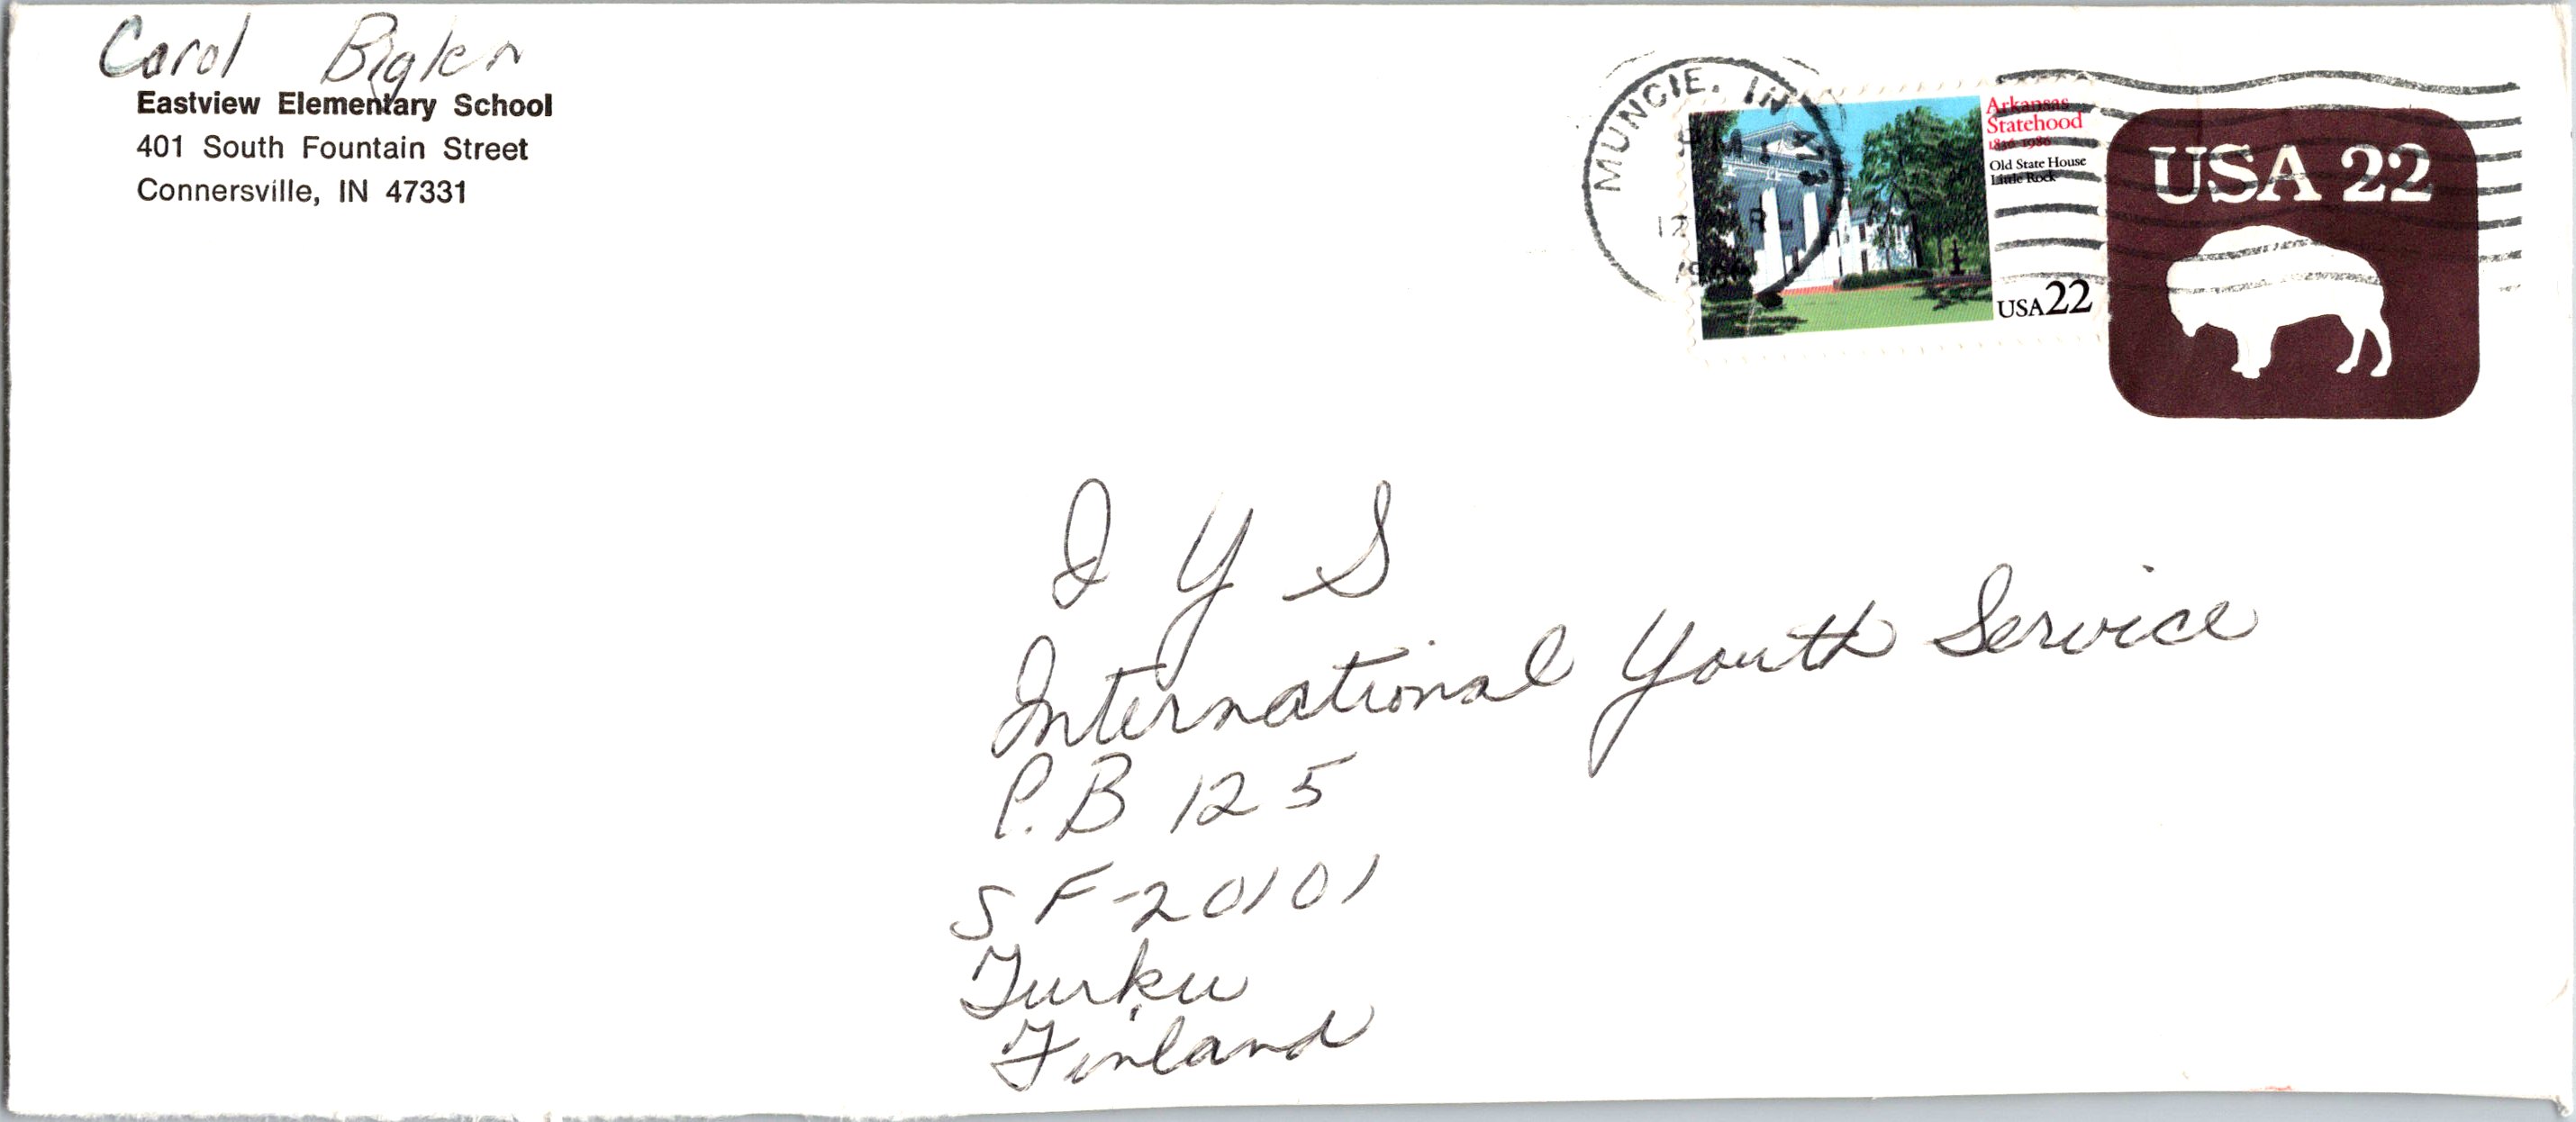 Carol Bigler
Eastview Elementary School
401 South Fountain Street
Connersville, IN 47331
MUNCIE, IN 473
PM
Arkansas
Statehood
1836-1986
Old State House
Little Rock
USA22
USA 22
I Y S
International Youth Service
P.B 125
SF-20101
Turku
Finland